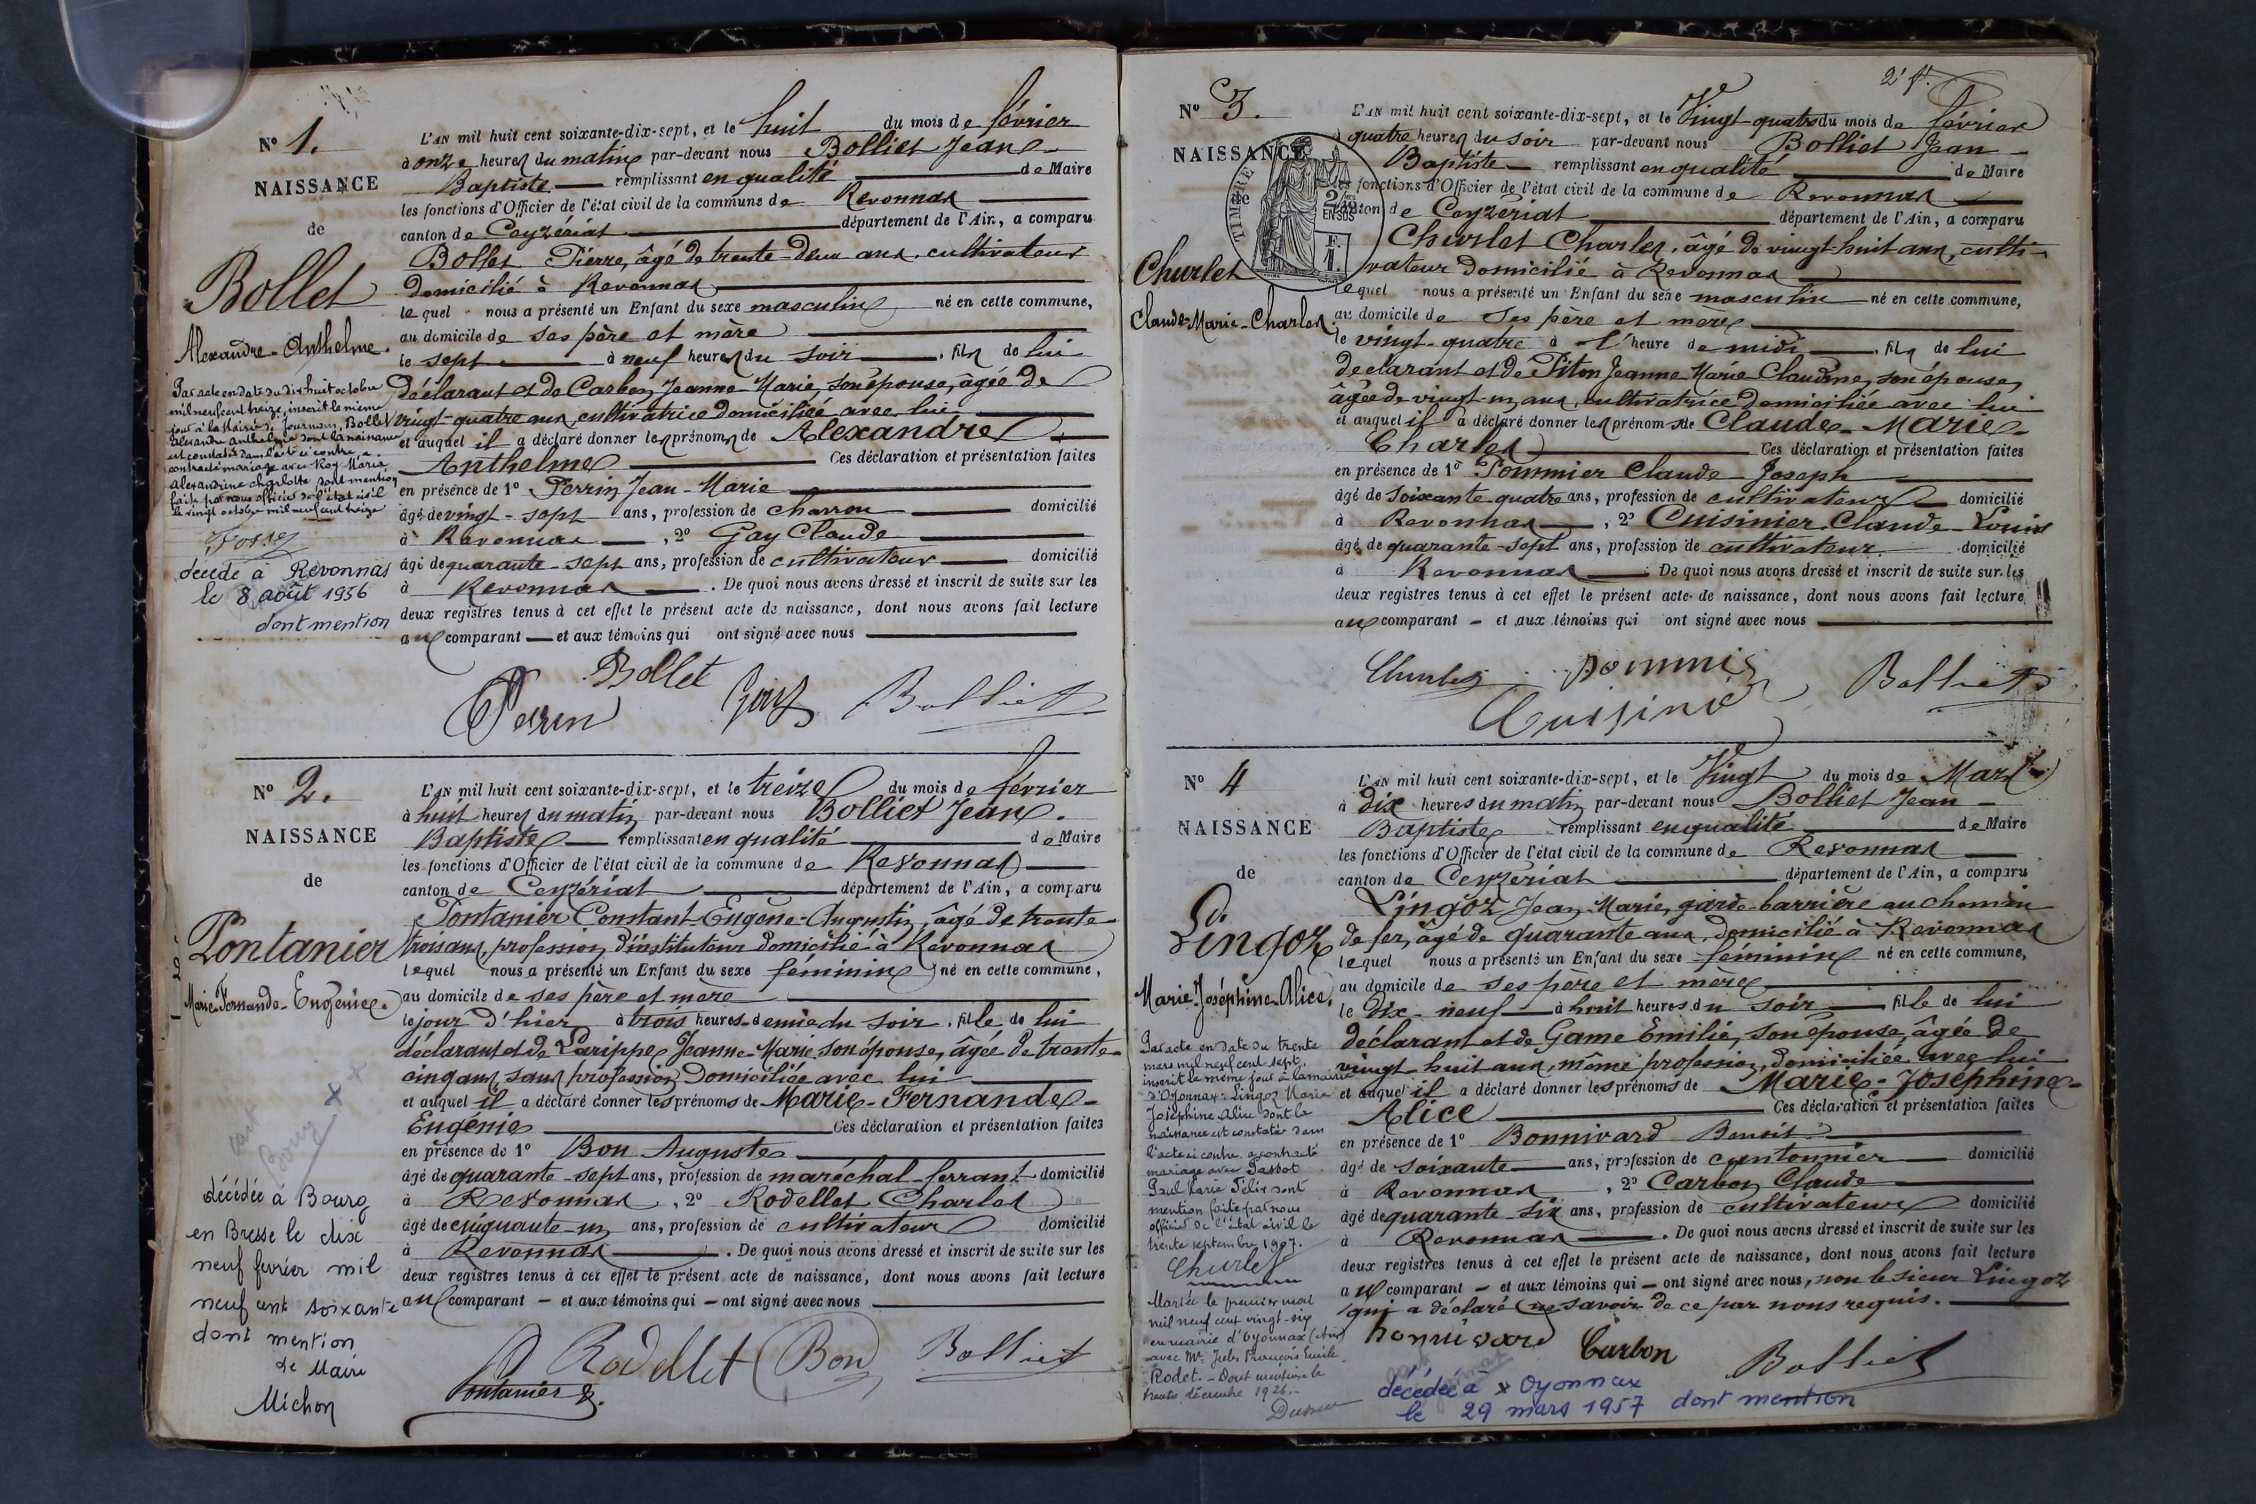 N° 1.
NAISSANCE
de
Bollet
Alexandre-Anthelme.
Par acte en date du dix huit octobre
mil neuf cent treize, inscrit le même
jour à la Mairie de Journans, Bollet
Alexandre Anthelme dont la naissance
est constatée dans l'acte ci contre, a
contracté mariage avec Roy Marie
Alexandrine Charlotte dont mention
faite par nous officier de l'état civil
le vingt octobre mil neuf cent treize
décédé à Revonnas
le 8 août 1936
dont mention
L'AN mil huit cent soixante-dix-sept, et le huit du mois de février
à onze heures du matin par-devant nous Bolliet Jean-
Baptiste remplissant en qualité de Maire
les fonctions d'Officier de l'état civil de la commune de Revonnas
canton de Ceyzériat département de l'Ain, a comparu
Bollet Pierre, âgé de trente-deux ans, cultivateur
domicilié à Revonnas
lequel nous a présenté un Enfant du sexe masculin né en cette commune,
au domicile de ses père et mère
le sept à neuf heures du soir, fils de lui
déclarant et de Carbon Jeanne Marie, son épouse, âgée de
vingt-quatre ans, cultivatrice domiciliée avec lui
et auquel il a déclaré donner les prénoms de Alexandre
Anthelme Ces déclaration et présentation faites
en présence de 1° Perrin Jean-Marie
âgé de vingt-sept ans, profession de charron domicilié
à Revonnas, 2° Gay Claude
âgé de quarante-sept ans, profession de cultivateur domicilié
à Revonnas. De quoi nous avons dressé et inscrit de suite sur les
deux registres tenus à cet effet le présent acte de naissance, dont nous avons fait lecture
aux comparant et aux témoins qui ont signé avec nous
Bollet
Perrin Gay Bolliet
N° 2.
NAISSANCE
de
Pontanier
Marie-Fernande-Eugénie.
décédée à Bourg
en Bresse le dix
neuf fevrier mil
neuf cent soixante
dont mention
le Maire
Michon
L'AN mil huit cent soixante-dix-sept, et le treize du mois de février
à huit heures du matin par-devant nous Bolliet Jean-
Baptiste remplissant en qualité de Maire
les fonctions d'Officier de l'état civil de la commune de Revonnas
canton de Ceyzériat département de l'Ain, a comparu
Pontanier Constant-Eugène-Augustin, âgé de trente-
trois ans, profession d'instituteur domicilié à Revonnas
lequel nous a présenté un Enfant du sexe féminin né en cette commune,
au domicile de ses père et mère
le jour d'hier à trois heures-demie du soir, fille de lui
déclarant et de Larippe Jeanne-Marie son épouse, âgée de trente-
cinq ans, sans profession domiciliée avec lui
et auquel il a déclaré donner les prénoms de Marie-Fernande-
Eugénie Ces déclaration et présentation faites
en présence de 1° Bon Auguste
âgé de quarante-sept ans, profession de maréchal-ferrant domicilié
à Revonnas, 2° Rodellet Charles
âgé de cinquante-un ans, profession de cultivateur domicilié
à Revonnas. De quoi nous avons dressé et inscrit de suite sur les
deux registres tenus à cet effet le présent acte de naissance, dont nous avons fait lecture
aux comparant - et aux témoins qui - ont signé avec nous
Rodellet Bon Bolliet
Pontanier
2e f.
N° 3.
NAISSANCE
de
TIMBRE
2/10 EN SUS
F.
1.
Churlet
Claude-Marie-Charles.
L'AN mil huit cent soixante-dix-sept, et le Vingt-quatre du mois de février
à quatre heures du soir par-devant nous Bolliet Jean-
Baptiste remplissant en qualité de Maire
les fonctions d'Officier de l'état civil de la commune de Revonnas
canton de Ceyzériat département de l'Ain, a comparu
Churlet Charles, âgé de vingt huit ans, culti-
vateur domicilié à Revonnas
lequel nous a présenté un Enfant du sexe masculin né en cette commune,
au domicile de ses père et mère
le vingt-quatre à l'heure de midi, fils de lui
déclarant et de Piton Jeanne Marie Claudine, son épouse,
âgée de vingt-un ans, cultivatrice domiciliée avec lui
et auquel il a déclaré donner les prénoms de Claude-Marie-
Charles Ces déclaration et présentation faites
en présence de 1° Pommier Claude-Joseph
âgé de soixante-quatre ans, profession de cultivateur domicilié
à Revonnas, 2° Cuisinier Claude-Louis
âgé de quarante-sept ans, profession de cultivateur domicilié
à Revonnas. De quoi nous avons dressé et inscrit de suite sur les
deux registres tenus à cet effet le présent acte de naissance, dont nous avons fait lecture
aux comparant - et aux témoins qui ont signé avec nous
Churlet Bolliet
N° 4
NAISSANCE
de
Lingoz
Marie-Joséphine-Alice,
Par acte en date du trente
mars mil neuf cent sept,
inscrit le même jour à la mairie
d'Oyonnax, Lingoz Marie
Joséphine Alice dont la
naissance est constatée dans
l'acte ci contre a contracté
mariage avec Passot
Paul Marie Félix dont
mention faite par nous
officier de l'état civil le
trente septembre 1907.
Churlet
Mariée le premier mai
mil neuf cent vingt-six
en mairie d'Oyonnax (Ain)
avec Mr. Jules François Emile
Rodet. - Dont mention le
trente décembre 1926.
L'AN mil huit cent soixante-dix-sept, et le Vingt du mois de Mars
à dix heures du matin par-devant nous Bolliet Jean-
Baptiste remplissant en qualité de Maire
les fonctions d'Officier de l'état civil de la commune de Revonnas
canton de Ceyzériat département de l'Ain, a comparu
Lingoz Jean-Marie, garde-barrière au chemin
de fer, âgé de quarante ans, domicilié à Revonnas
lequel nous a présenté un Enfant du sexe féminin né en cette commune,
au domicile de ses père et mère
le dix-neuf à huit heures du soir, fille de lui
déclarant et de Game Emilie, son épouse, âgée de
vingt-huit ans, même profession, domiciliée avec lui
et auquel il a déclaré donner les prénoms de Marie-Joséphine-
Alice Ces déclaration et présentation faites
en présence de 1° Bonnivard Benoit
âgé de soixante ans, profession de cantonnier domicilié
à Revonnas, 2° Carbon Claude
âgé de quarante-six ans, profession de cultivateur domicilié
à Revonnas. De quoi nous avons dressé et inscrit de suite sur les
deux registres tenus à cet effet le présent acte de naissance, dont nous avons fait lecture
aux comparant - et aux témoins qui - ont signé avec nous, non le sieur Lingoz
qui a déclaré ne savoir de ce par nous requis.
bonnivard Carbon Bolliet
décédée à Oyonnax
le 29 mars 1957 dont mention